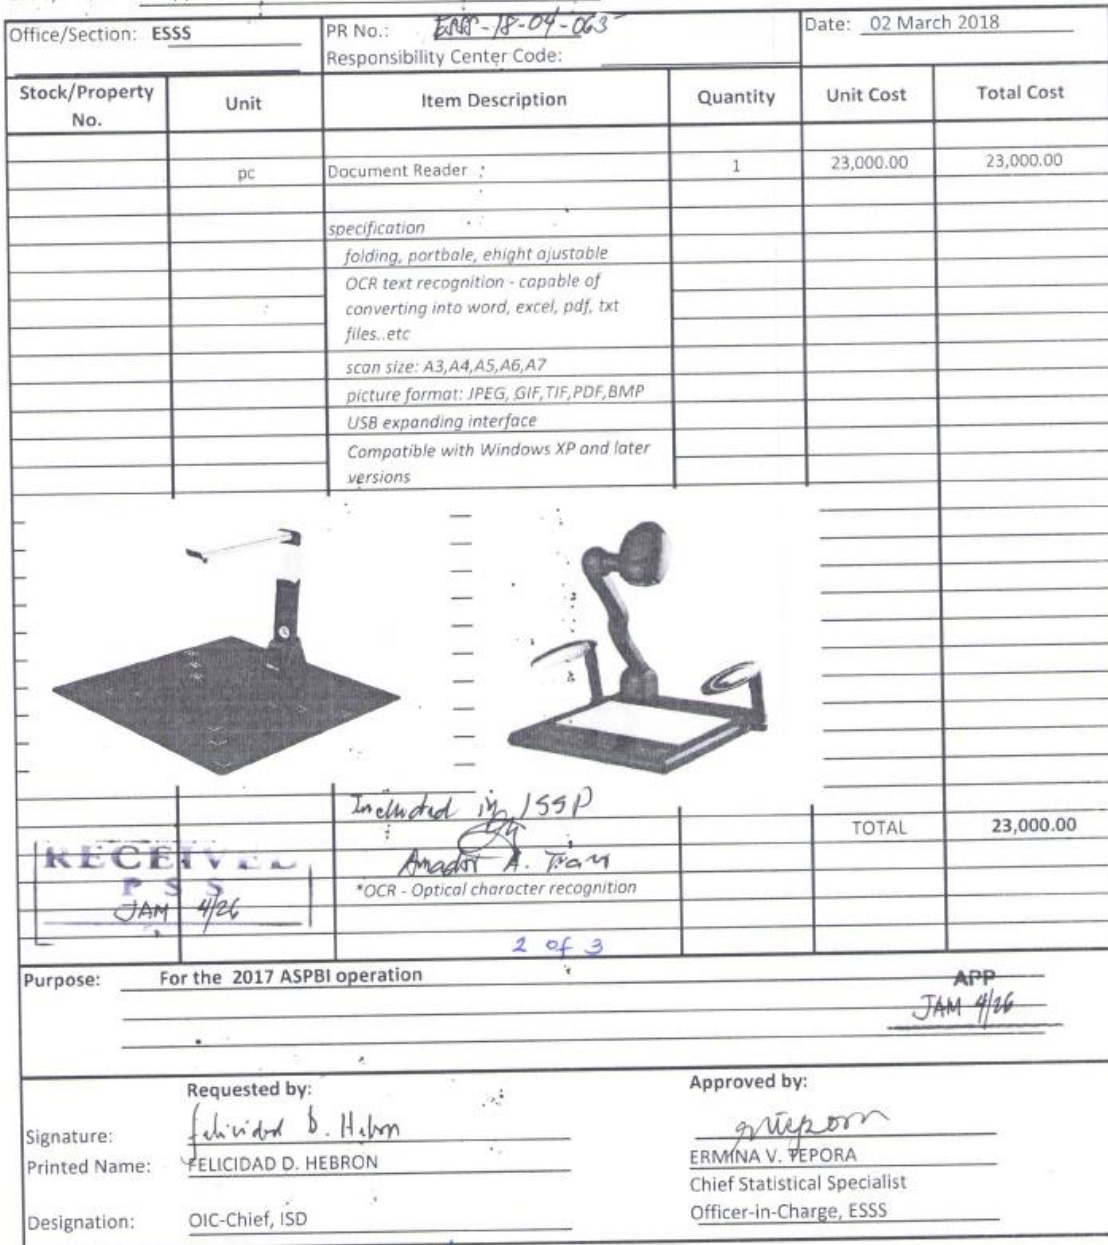 Office/Section: ESSS
PR No.: ESSS-18-04-063
Date: 02 March 2018
Responsibility Center Code:
Stock/Property No. Unit Item Description Quantity Unit Cost Total Cost
pc Document Reader 1 23,000.00 23,000.00
specification
folding, portbale, ehight ajustable
OCR text recognition - capable of
converting into word, excel, pdf, txt
files..etc
scan size: A3,A4,A5,A6,A7
picture format: JPEG, GIF,TIF,PDF,BMP
USB expanding interface
Compatible with Windows XP and later
versions
Included in ISSP
TOTAL 23,000.00
RECEIVED
PSS
JAM 4/26
Amador A.
*OCR - Optical character recognition
2 of 3
Purpose: For the 2017 ASPBI operation
APP
JAM 4/26
Requested by:
Approved by:
Signature: Felicidad D. Hebron
Printed Name: FELICIDAD D. HEBRON
ERMINA V. TEPORA
Chief Statistical Specialist
Designation: OIC-Chief, ISD
Officer-in-Charge, ESSS